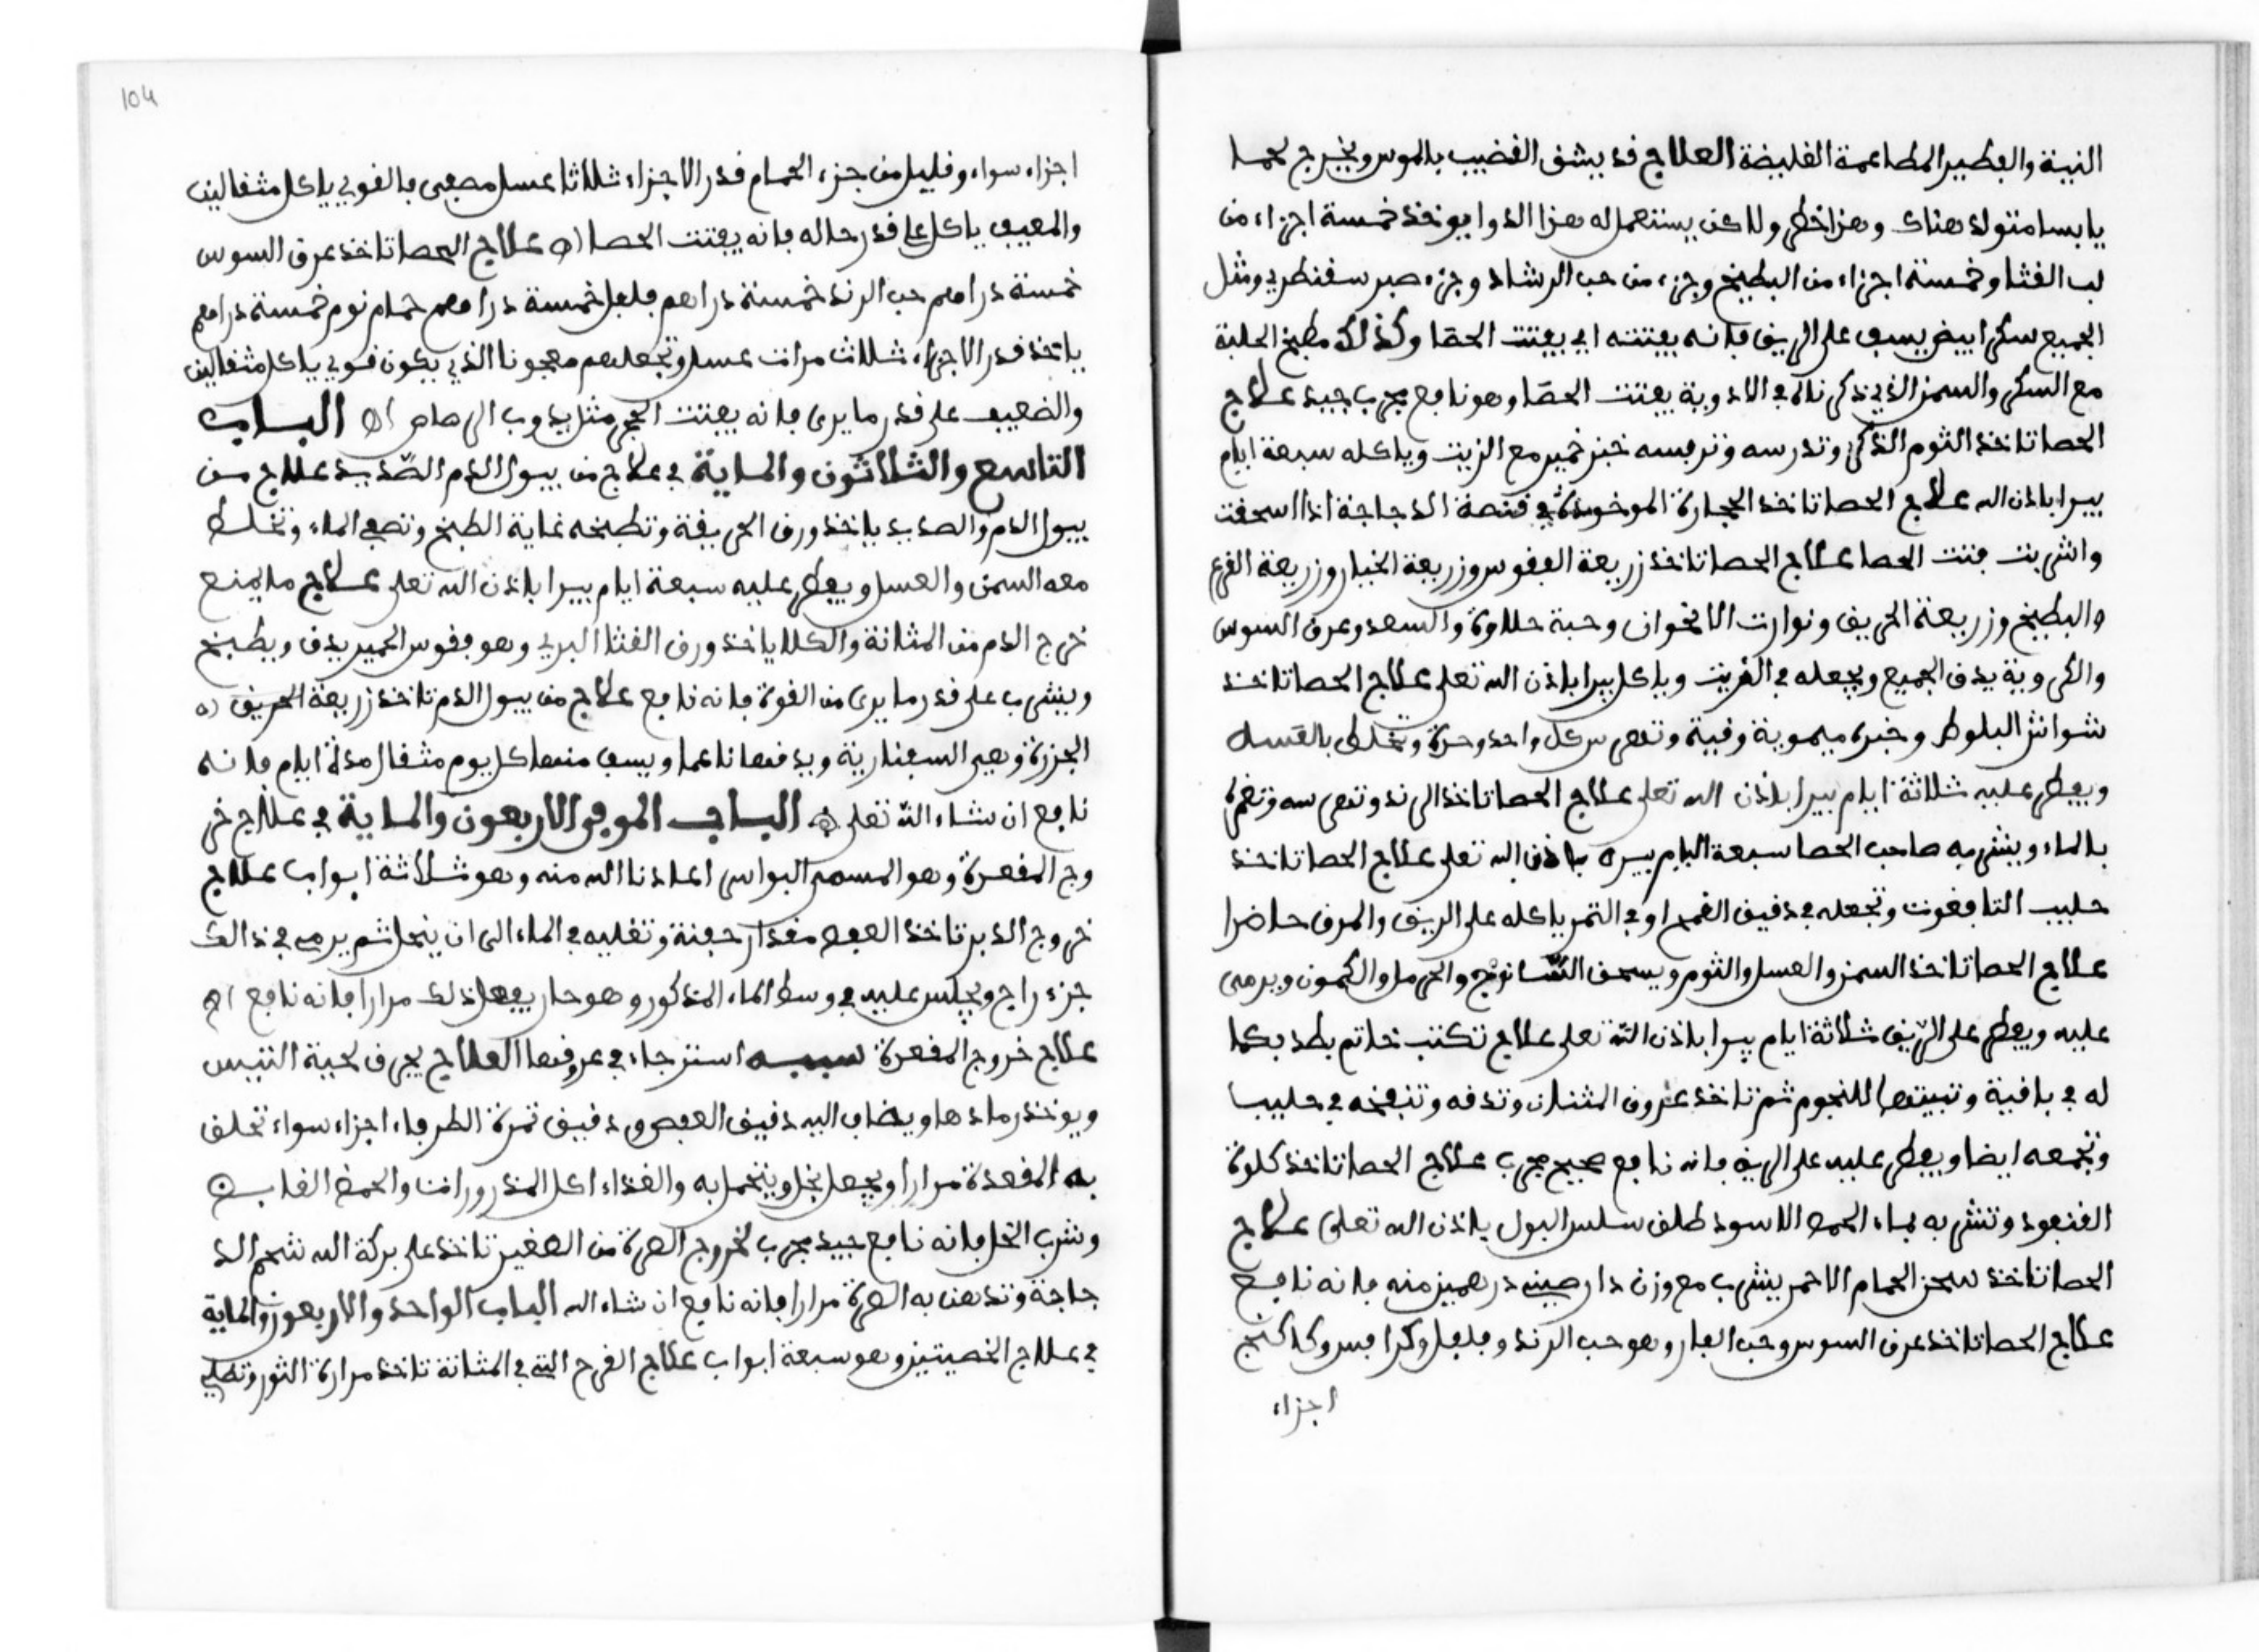 النية والفطير المطاعمة الغليضة العلاج قد يشق القضيب بالموس ويخرج لحما
يابسا متولد هناك وهذا خطر ولاكن يستعمل له هذا الدوا يوخذ خمسة اجزاء من
لب القثا وخمسة اجزاء من البطيخ وجزء من حب الرشاد وجزء صبر سقنطري ومثل
الجميع سكر ابيض يسف على الريق فانه يفتته اي يفتت الحصا وكذلك مطبخ الحلبة
مع السكر والسمن الذي ذكرناه في الادوية يفتت الحصا وهو نافع مجرب جيد علاج
الحصا تاخذ الثوم الذكر وتدرسه وترفسه خبز خمير مع الزيت وياكله سبعة ايام
يبرا باذن الله علاج الحصا تاخذ الحجارة الموخوذة في قنصة الدجاجة اذا اسحقت
واشربت فتت الحصا علاج الحصا تاخذ زريعة الفقوس وزريعة الخيار وزريعة القرع
والبطيخ وزريعة الحريق ونوارت الاقحوان وحبة حلاوة والسعد وعرق السوس
والكروية يدق الجميع ويجعله في الزيت وياكل يبرا باذن الله تعلى علاج الحصا تاخذ
شواش البلوط وخبزه ميموية وقية وتهرس كل واحد وحده وتخلط بالعسل
ويفطر عليه ثلاثة ايام يبرا باذن الله تعلى علاج الحصا تاخذ الرند وتهرسه وتغمره
بالماء ويشربه صاحب الحصا سبعة ايام يبره باذن الله تعلى علاج الحصا تاخذ
حليب التافغوت وتجعله في دقيق القمح او في التمر ياكله على الريق والمرق حاضرا
علاج الحصا تاخذ السمن والعسل والثوم ويسحق والحرمل والكمون ويرمى
عليه ويفطر على الريق ثلاثة ايام يبرا باذن الله تعلى علاج تكتب خاتم بطد بكما
له في باقية وتبيتها للنجوم ثم تاخذ عروق المثنان وتدقه وتنفخه في حليبا
وتجمعه ايضا ويفطر عليه على الريق فانه نافع صحيح مجرب علاج الحصا تاخذ كلوة
القنفود وتشربه بماء الحمص الاسود طلق سلس البول باذن الله تعلى علاج
الحصا تاخذ الحمام الاحمر يشرب مع وزن دارصينه درهمين منه فانه نافع
علاج الحصا تاخذ عرق السوس وحب الغار وهو حب الرند وفلفل وكرافس وكاكنج
اجزاء
104
اجزاء سواء وقليل من جزء الحمام قدر الاجزاء ثلاثا عسل مصفى فالقوي ياكل مثقالين
والضعيف ياكل على قدر حاله فانه يفتت الحصا اه علاج الحصا تاخذ عرق السوس
خمسة دراهم حب الرند خمسة دراهم فلفل خمسة دراهم خمسة دراهم
ياخذ قدر الاجزاء ثلاث مرات عسل وتجعلهم معجونا الذي يكون قوي ياكل مثقالين
والضعيف على قدر ما يرى فانه يفتت الحجر مثل يذوب الرصاص اه الباب
التاسع والثلاثون والماية في علاج من يبول الدم الصديد علاج من
يبول الدم والصديد ياخذ ورق الحريقة وتطبخه غاية الطبخ وتصفي الماء وتخلط
معه السمن والعسل ويفطر عليه سبعة ايام يبرا باذن الله تعلى علاج ما يمنع
خرج الدم من المثانة والكلا ياخذ ورق القثا البري وهو فقوس الحمير يدق ويطبخ
ويشرب على قدر ما يرى من القوة فانه نافع علاج من يبول الدم تاخذ زريعة الحريق
الجزرة وهي السفنارية ويدقها ناعما ويسف منها كل يوم مثقال مدة ايام فانه
نافع ان شاء الله تعلى اه الباب الموفي الاربعون والماية في علاج خر
وج المقعدة وهو المسمى البواس اعاذنا الله منه وهو ثلاثة ابواب علاج
خروج الدبر تاخذ العفص مقدار حفنة وتغليه في الماء الى ان ينحل ثم يرمى في ذالك
جزء زاج ويجلس عليه في وسط الماء المذكور وهو حار يفعل ذلك مرارا فانه نافع اه
علاج خروج المقعدة سببه استرخاء في عروقها العلاج يحرق لحية التيس
ويوخذ رمادها ويضاف اليه دقيق العفص ودقيق ثمرة الطرفاء اجزاء سواء تخلف
به المقعدة مرارا ويجعل بخل ويتحمل به والغذاء اكل المذرورات والحمض القابض
وشرب الخل فانه نافع جيد مجرب لخروج السرة من الصغير تاخذ على بركة الله شحم الد
جاجة وتدهن به السرة مرارا فانه نافع ان شاء الله الباب الواحد والاربعون والماية
في علاج الخصيتين وهو سبعة ابواب علاج القرح التي في المثانة تاخذ مرارة الثور وتطلي